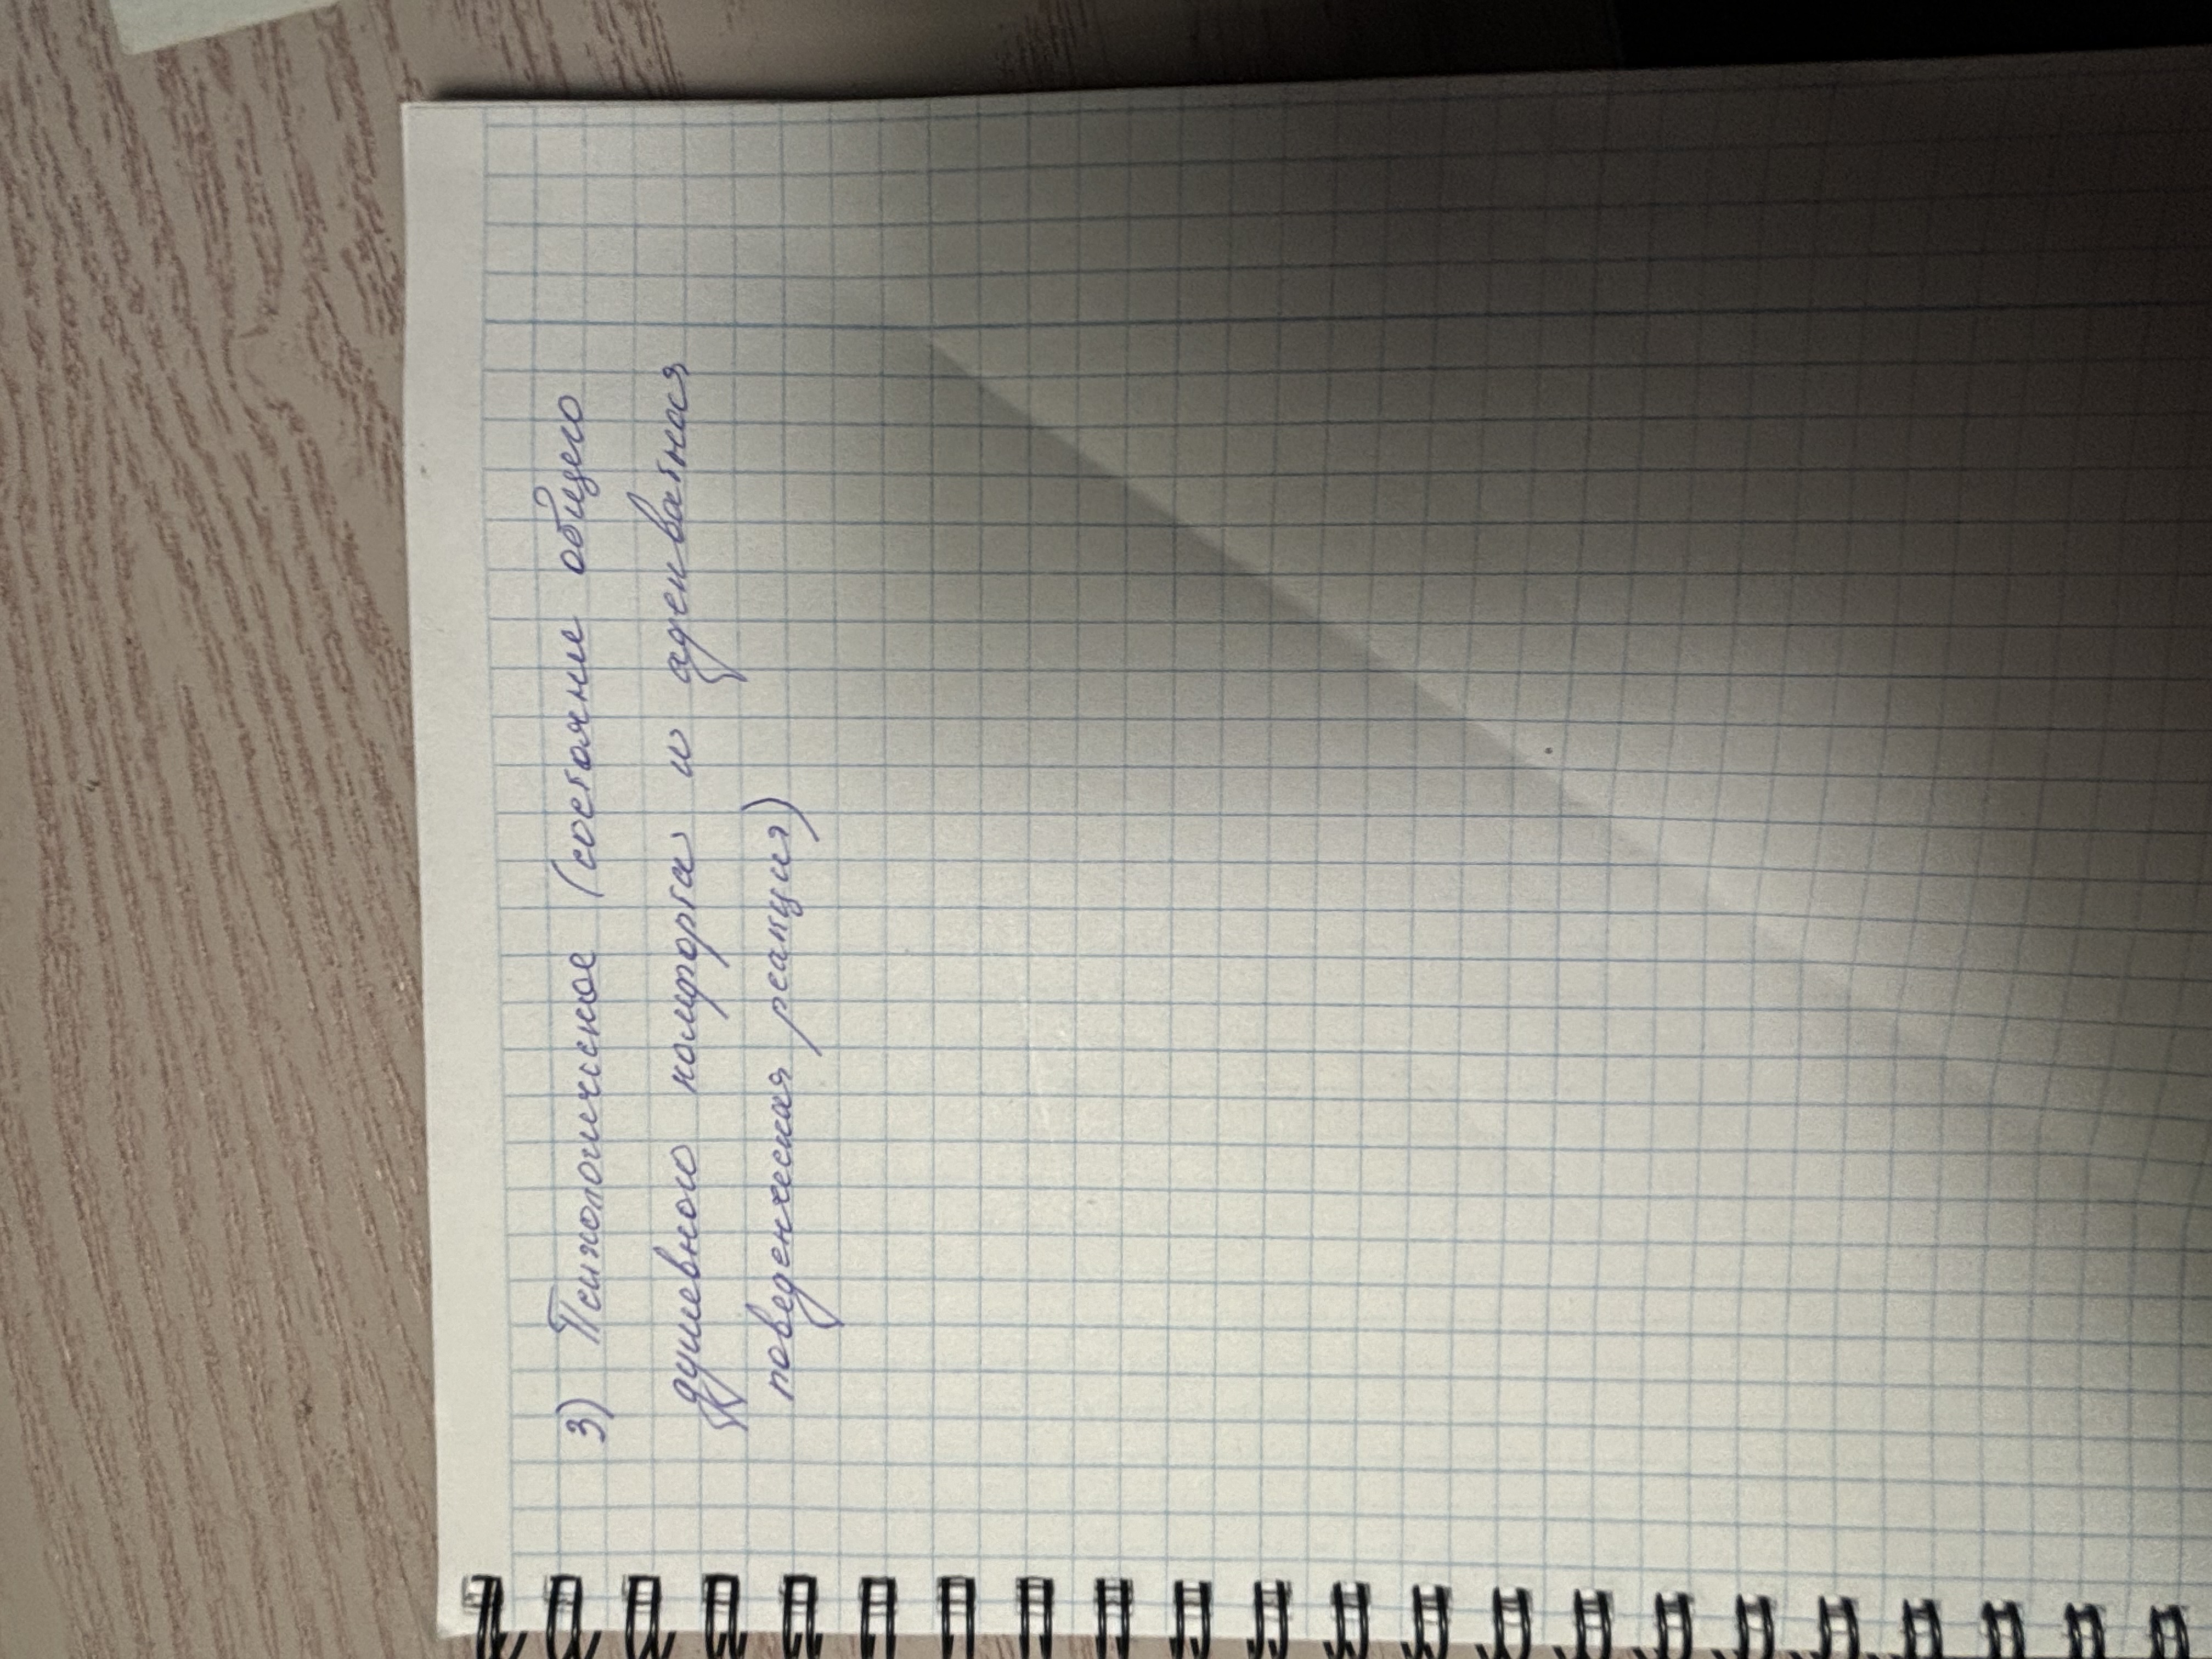 3) Психологическое (состояние общего
душевного комфорта и адекватная
поведенческая реакция)